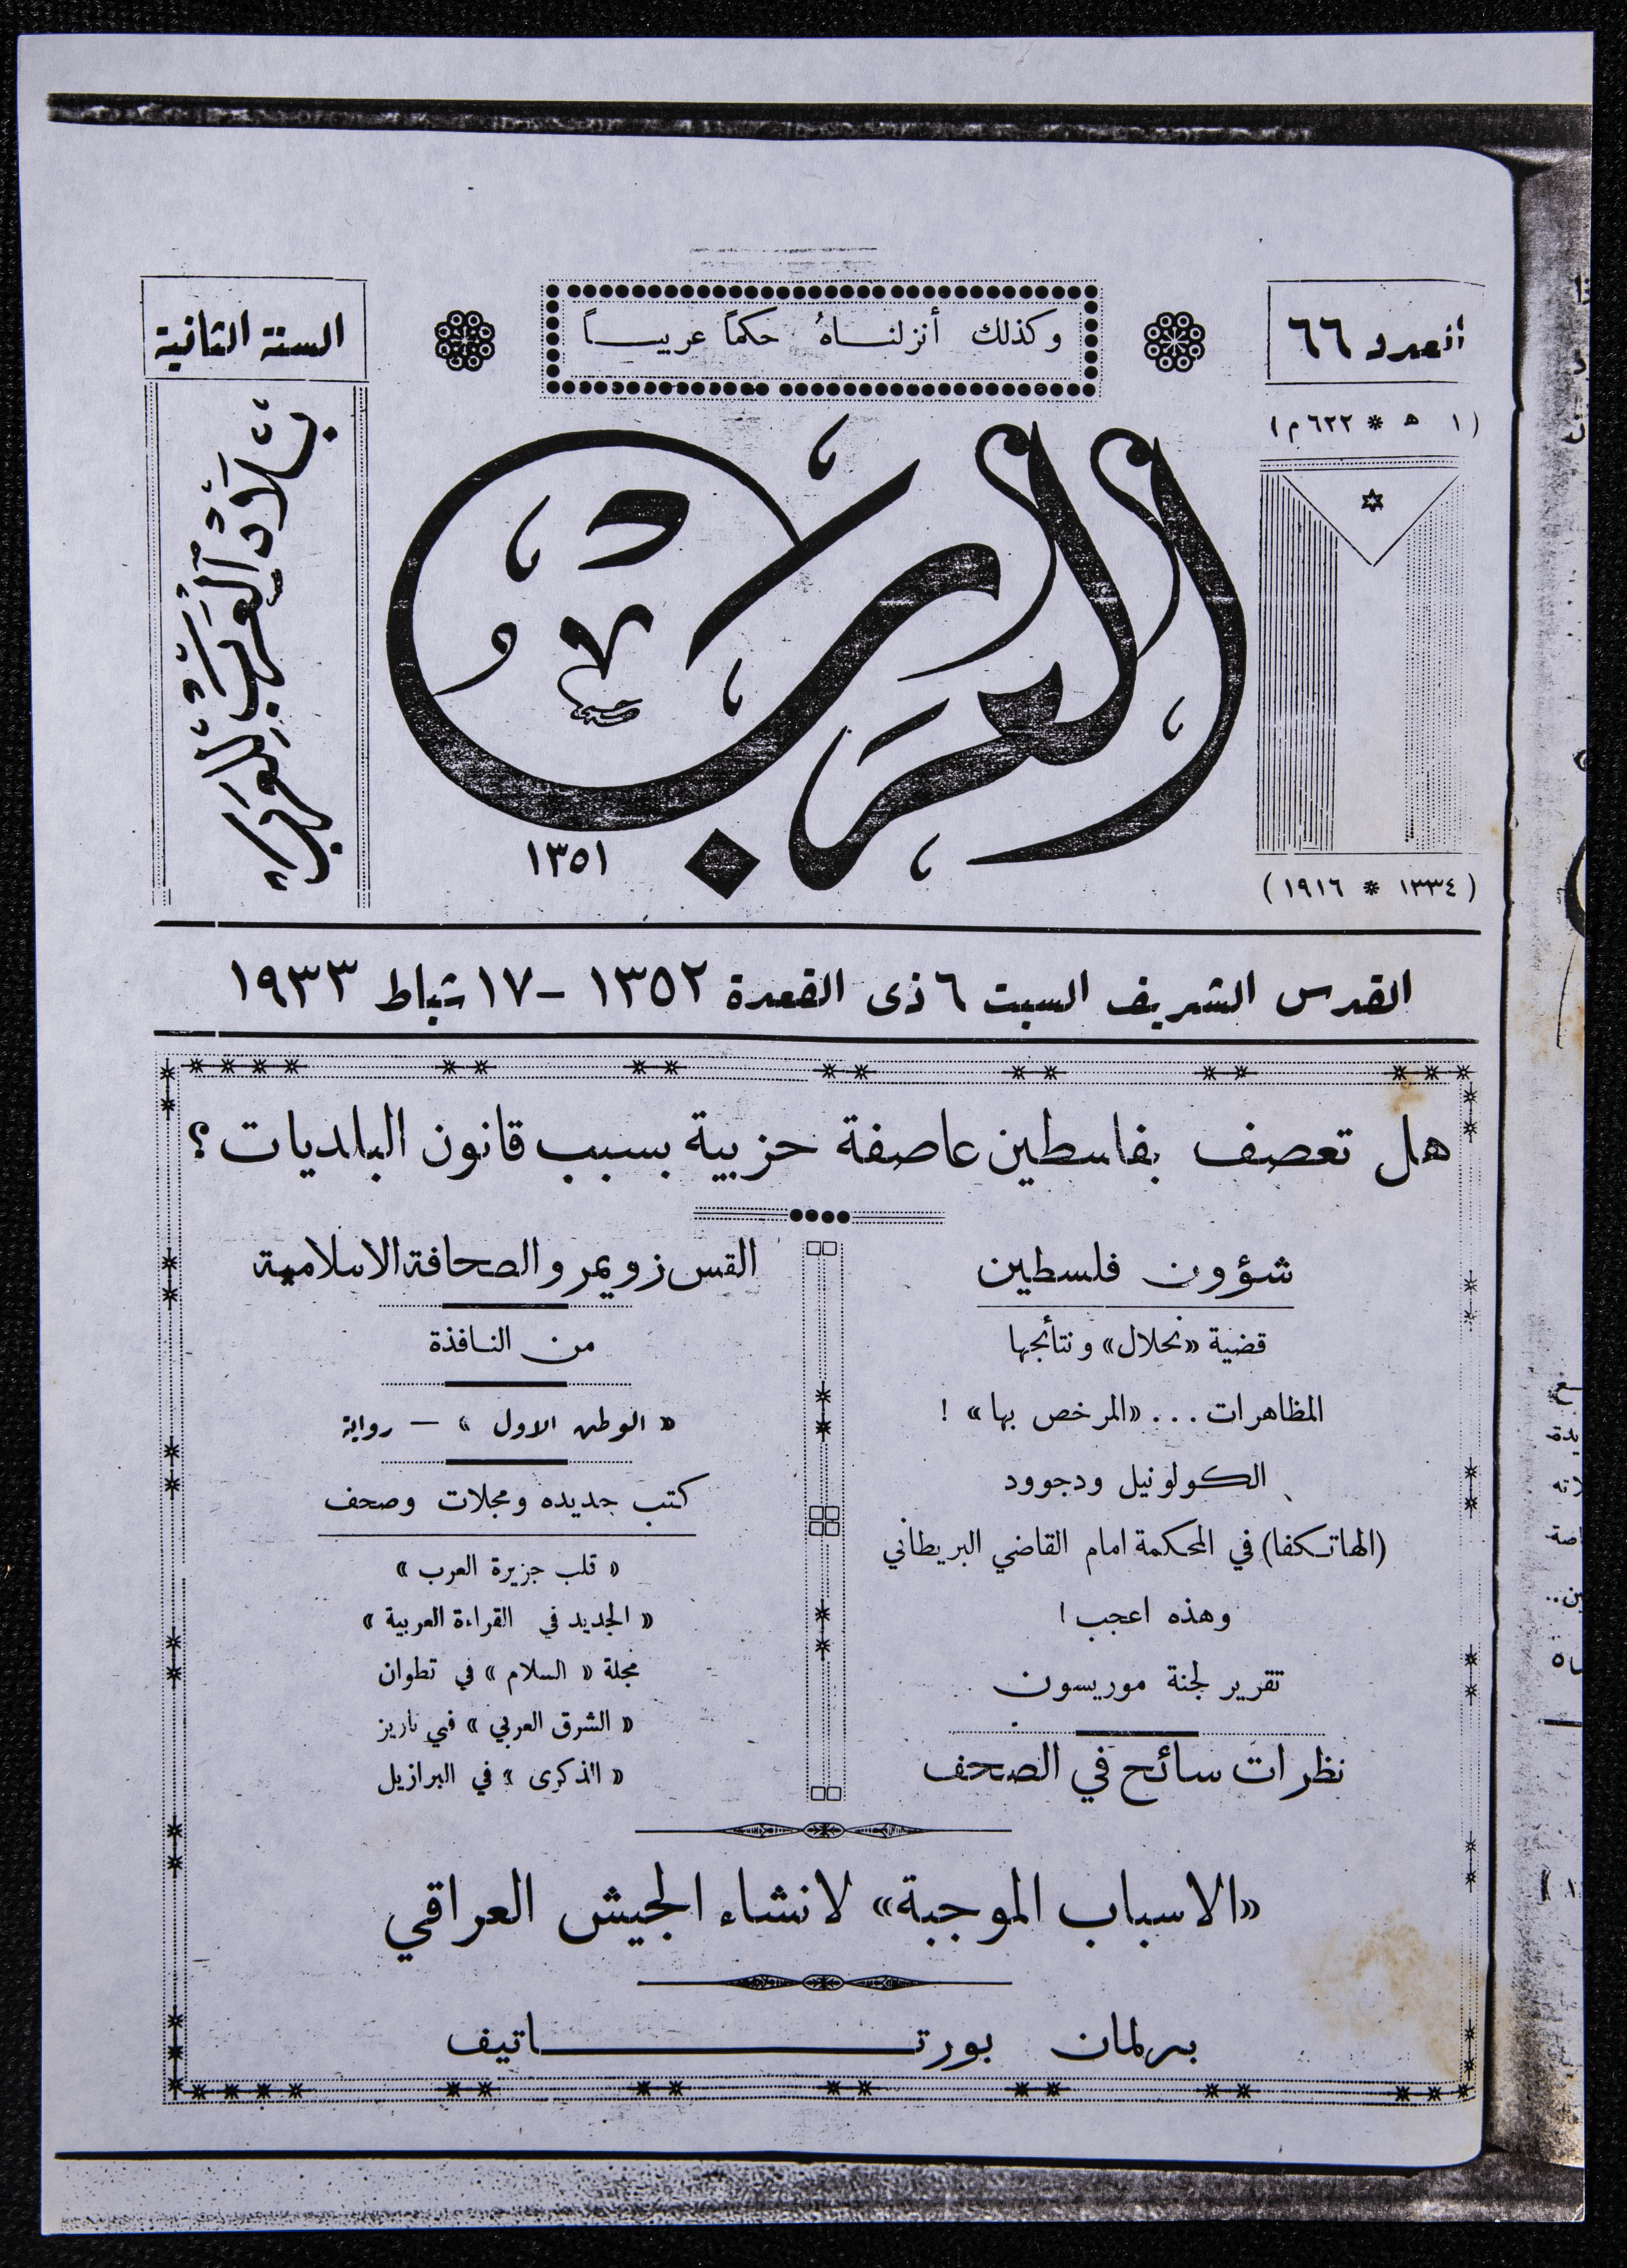 العدد ٦٦
وكذلك أنزلناهُ حكماً عربياً
السنة الثانية
(١ ه * ٦٢٢ م)
العرب
بلاد العرب للعرب
١٣٥١
(١٣٣٤ * ١٩١٦)
القدس الشريف السبت ٦ ذى القعدة ١٣٥٢ – ١٧ شباط ١٩٣٣
هل تعصف بفلسطين عاصفة حزبية بسبب قانون البلديات؟
شؤون فلسطين
قضية «نحلال» ونتائجها
المظاهرات... «المرخص بها» !
الكولونيل ودجوود
(الهاتكفا) في المحكمة امام القاضي البريطاني
وهذه اعجب !
تقرير لجنة موريسون
نظرات سائح في الصحف
القس زويمر والصحافة الاسلامية
من النافذة
« الوطن الاول » — رواية
كتب جديده ومجلات وصحف
« قلب جزيرة العرب »
« الجديد في القراءة العربية »
مجلة « السلام » في تطوان
« الشرق العربي » في باريز
« الذكرى » في البرازيل
«الاسباب الموجبة» لانشاء الجيش العراقي
برلمان بورتاتيف